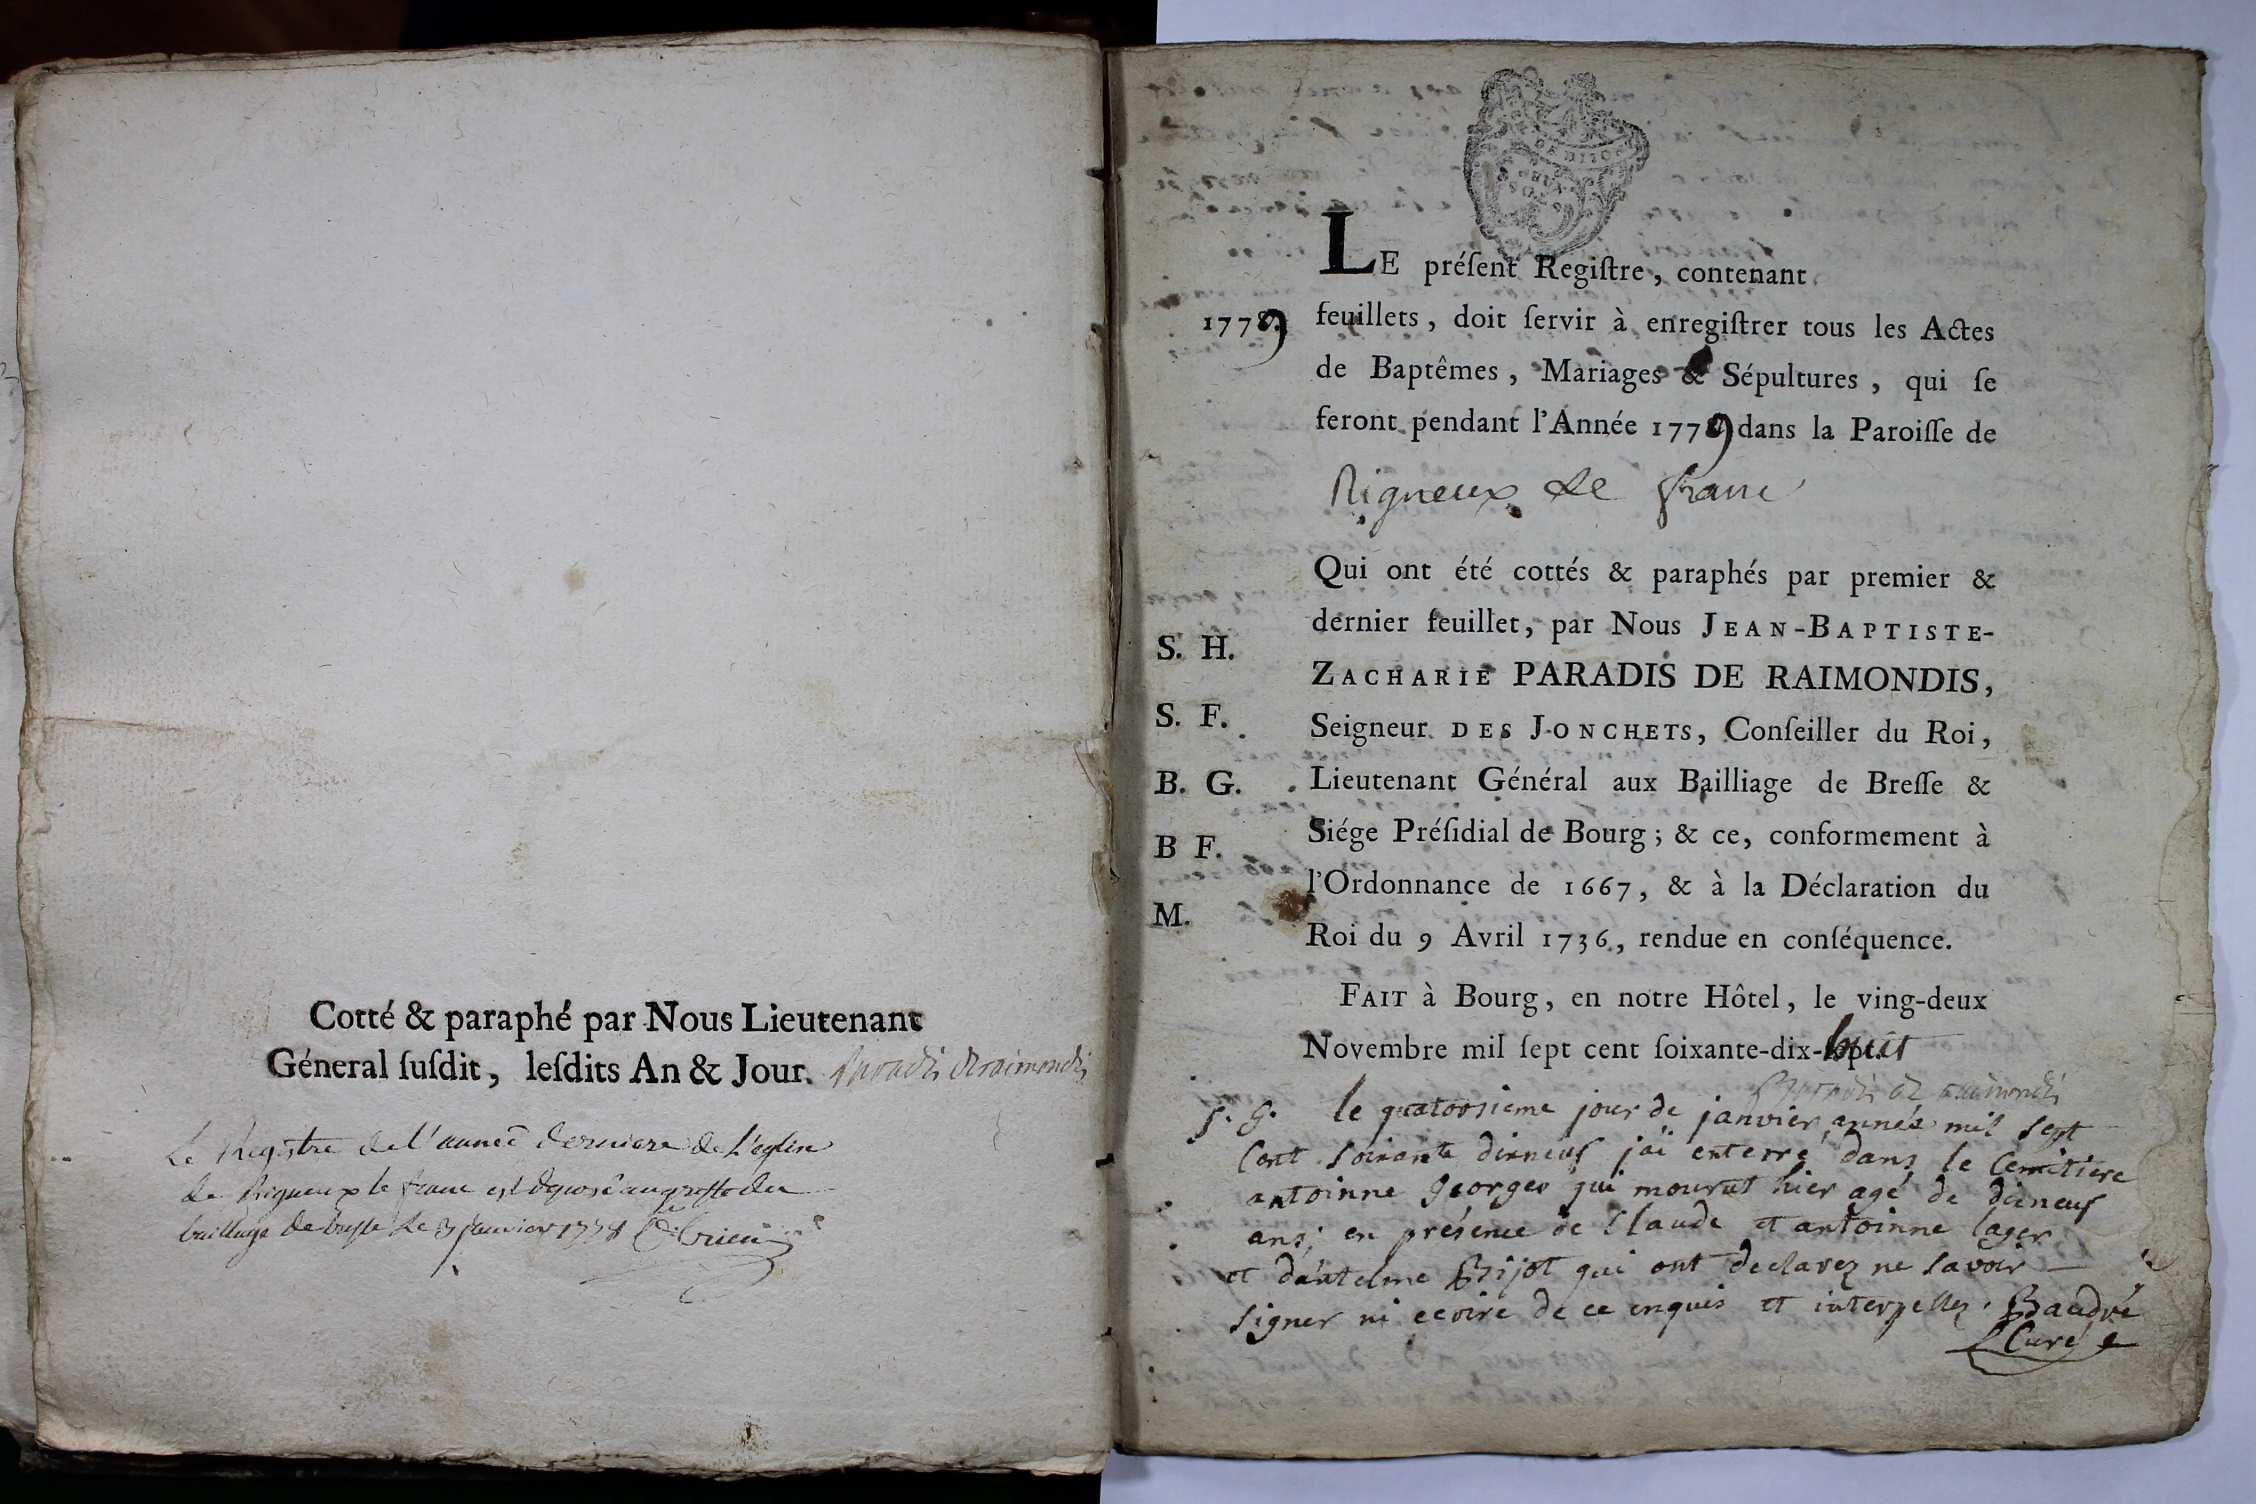 Cotté & paraphé par Nous Lieutenant
Géneral ſuſdit, leſdits An & Jour. Paradis deraimondis
Le Registre de l'année derniere de L'eglise
de Rigneux le franc est deposé au greffe du
bailliage de bresse Le 3 janvier 1778
LE préſent Regiſtre, contenant
1779 feuillets, doit ſervir à enregiſtrer tous les Actes
de Baptêmes, Mariages & Sépultures, qui ſe
feront pendant l'Année 1779 dans la Paroiſſe de
Rigneux le franc
Qui ont été cottés & paraphés par premier &
dernier feuillet, par Nous JEAN-BAPTISTE-
ZACHARIE PARADIS DE RAIMONDIS,
Seigneur DES JONCHETS, Conſeiller du Roi,
Lieutenant Général aux Bailliage de Breſſe &
Siége Préſidial de Bourg; & ce, conformement à
l'Ordonnance de 1667, & à la Déclaration du
Roi du 9 Avril 1736, rendue en conſéquence.
S. H.
S. F.
B. G.
B F.
M.
FAIT à Bourg, en notre Hôtel, le ving-deux
Novembre mil ſept cent ſoixante-dix-huit
Paradis de raimondis
S. G. le quatorsieme jour de janvier année mil sept
Cent soixante dixneuf jai enterré dans le Cemitiere
antoinne georges qui mourut hier agé de dixneuf
ans; en présence de Claude et antoinne lager
et dantelme Bijot qui ont declarez ne savoir
signer ni ecrire de ce enquis et interpellez. Baudré
Curé